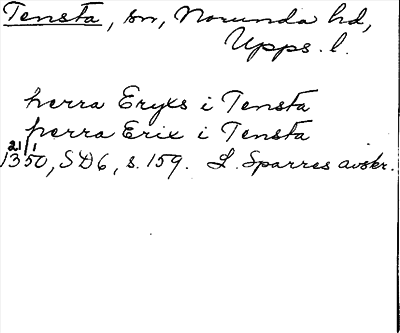 Tensta, sn, Norunda hd,
Upps. l.
herra Eryks i Tensta
herra Erix i Tensta
21/1
1350, SD6, s. 159. L. Sparres avskr.